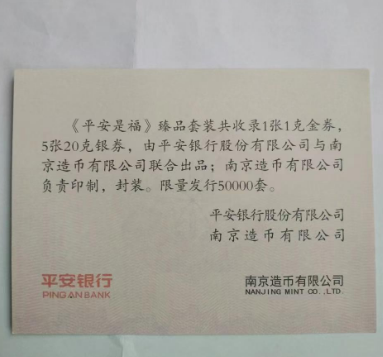 《平安是福》臻品套装共收录1张1克金券，
5张20克银券，由平安银行股份有限公司与南
京造币有限公司联合出品；南京造币有限公司
负责印制，封装。限量发行50000套。
平安银行股份有限公司
南京造币有限公司
平安银行
PING AN BANK
南京造币有限公司
NANJING MINT CO.,LTD.